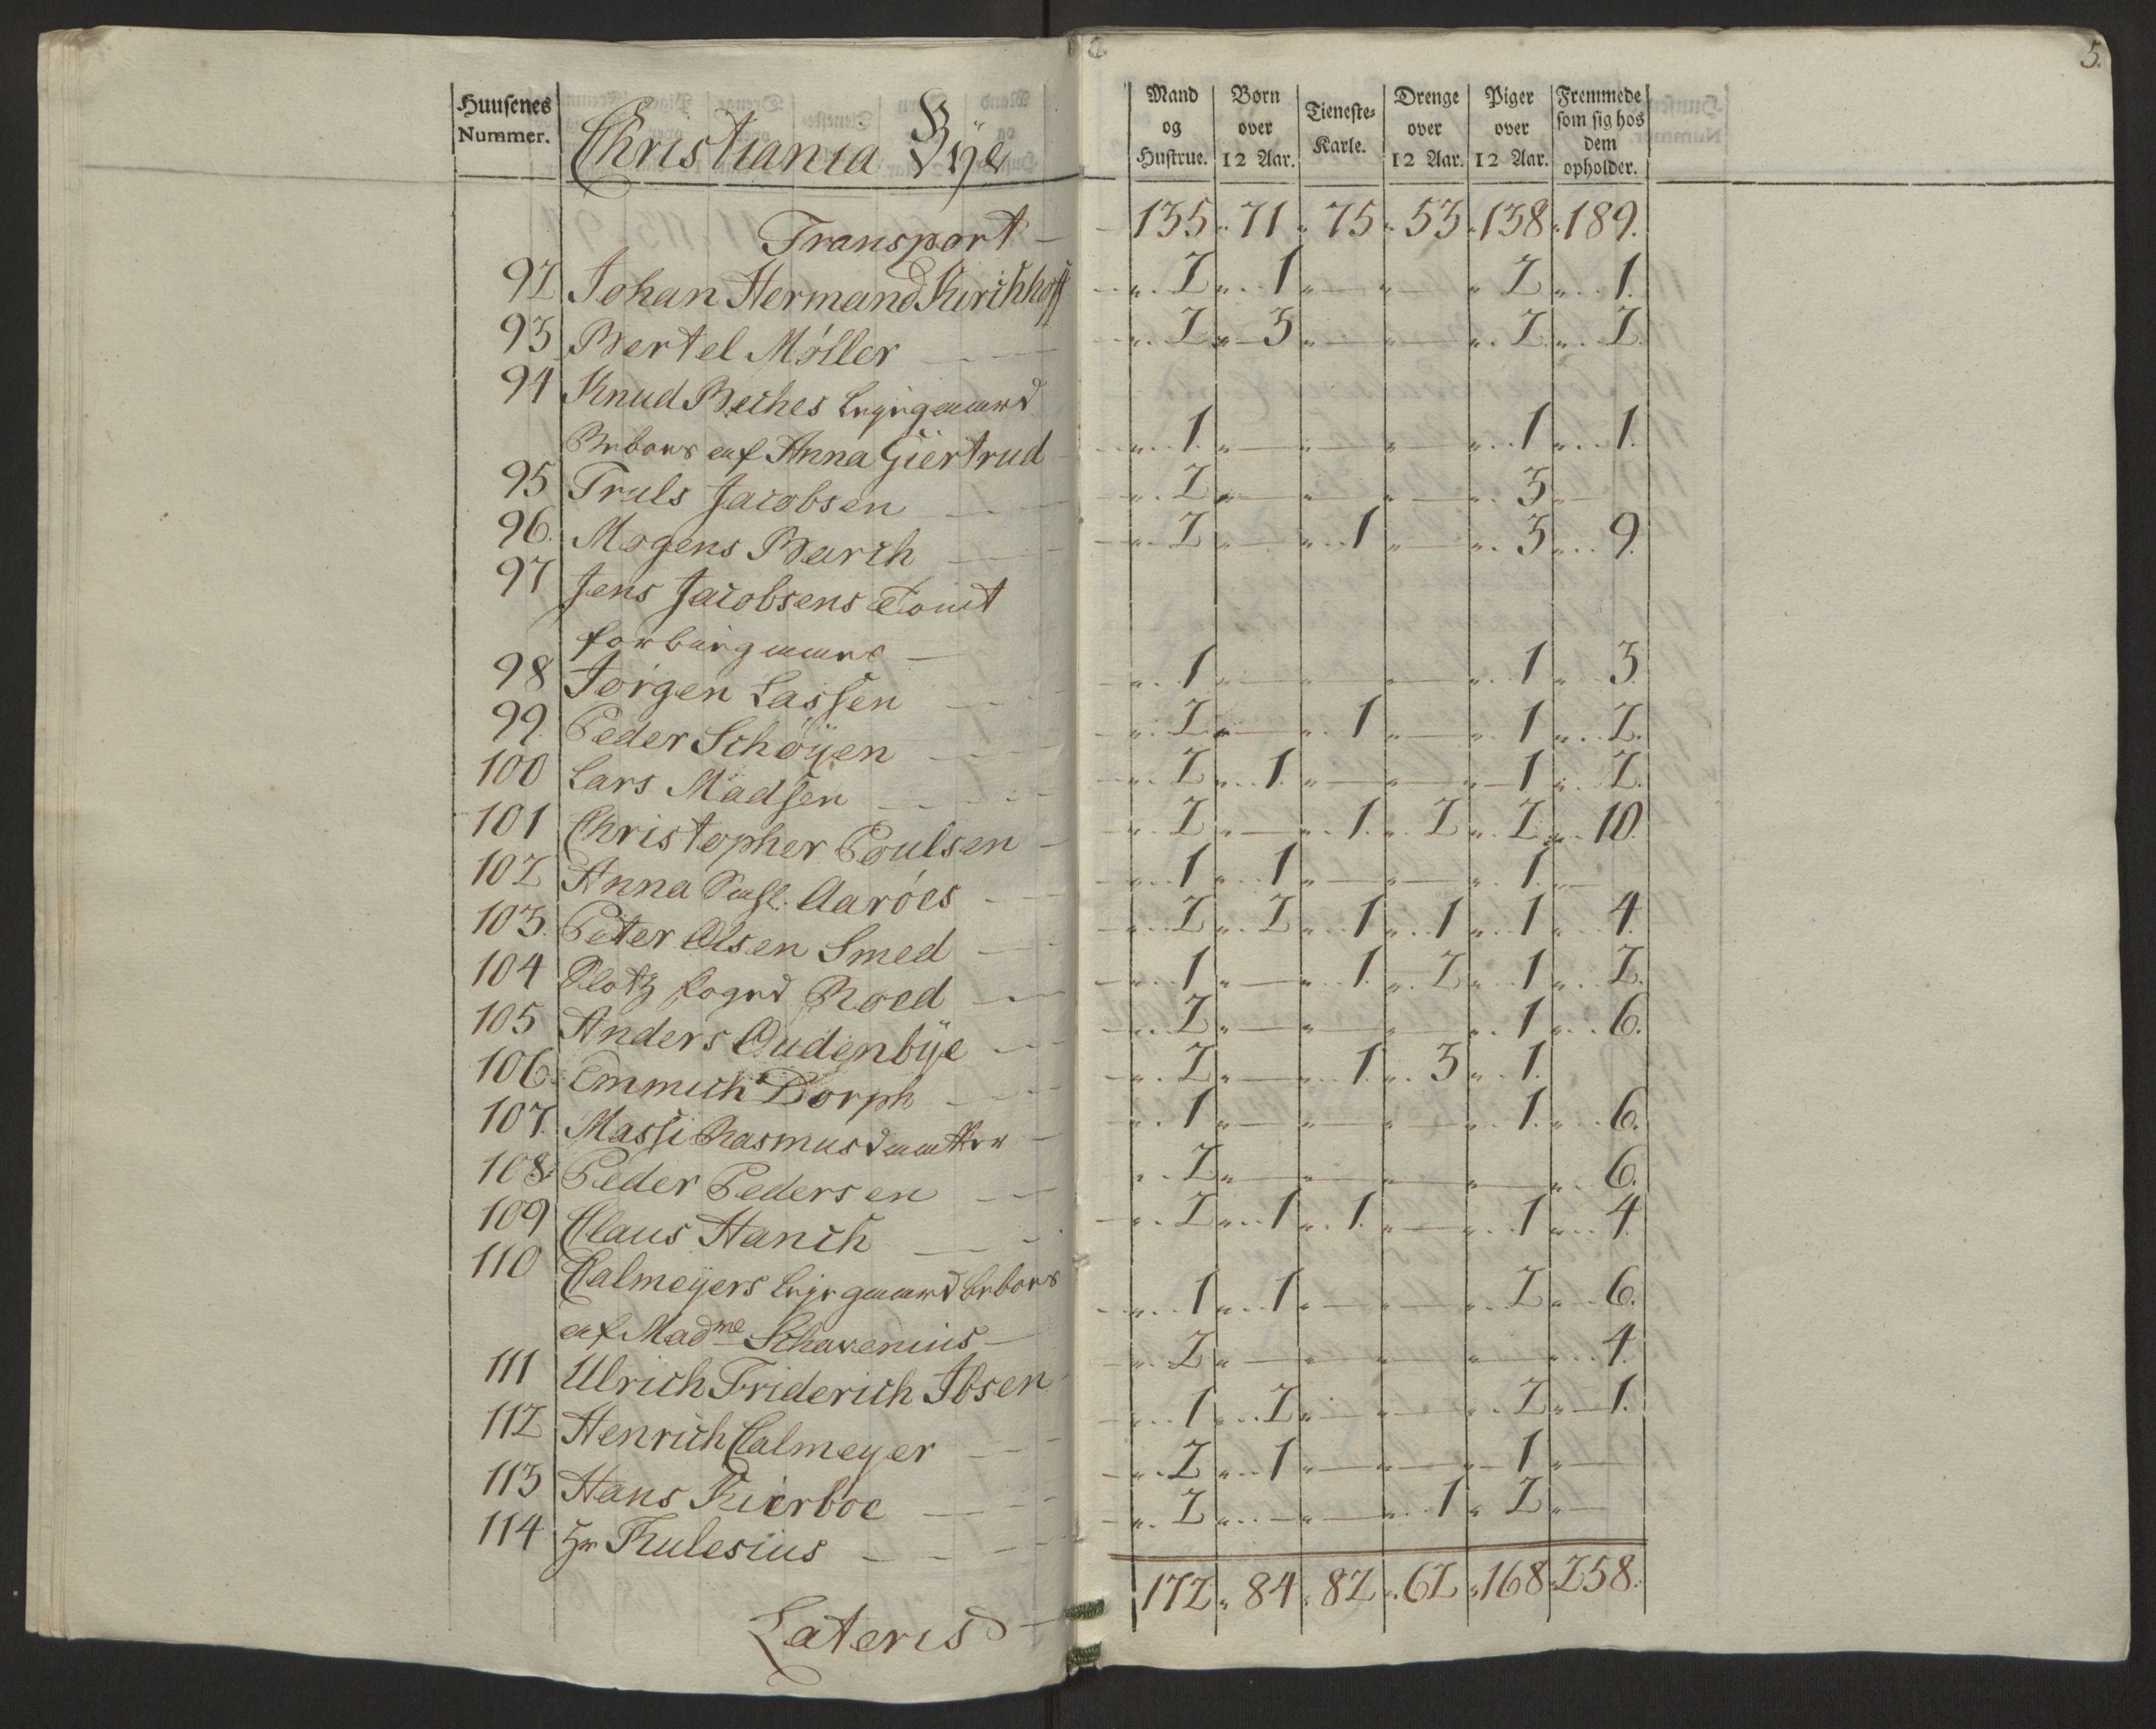 5.
Huusenes Nummer. Christiania Bÿe Mand og Hustrue. Børn over 12 Aar. Tieneste-Karle. Drenge over 12 Aar. Piger over 12 Aar. Fremmede som sig hos dem opholder.
Transport — 135. 71. 75. 53. 138. 189.
92 Johan Hermand Kirchhoff 2 1 — — 2 1.
93 Bertel Møller — 2 3 — — 2 2.
94 Knud Beches Leyegaard
Beboes af Anna Giertrud 1. — — — 1 1.
95 Truls Jacobsen — 2 — — — 3 —
96. Mogens Barch — 2 — 1 — 3 9.
97 Jens Jacobsens Tomt
forbigaaes —
98 Jørgen Lassen — 1 — — — 1 3
99. Peder Schöÿen — 2 — 1 — 1 2.
100 Lars Madsen — 2 1. — — 1 2.
101 Christopher Poulsen — 2 — 1. 2 2 10.
102 Anna Aaröes — 1 1 — — 1. —
103. Peter Olsen Smed — 2 2 1 1 1 4.
104 Plotz foged Roed — 1 — 1. 2 1 2.
105 Anders Oudenbÿe — 2 — — — 1 6.
106. Emmich Dorph — 2 — 1. 3 1.
107. Massi Rasmusdaatter — 1 — — — 1. 6.
108. Peder Pedersen — 2 — — — — 6.
109 Claus Hanch — 2 1 1. — 1 4.
110 Calmeÿers Leyegaard beboes
af Madme Schavenius — 1 1 — — 2 6.
111 Ulrich Friderich Ibsen 2 — — — — 4.
112 Henrich Calmeyer — 1 2 — — 2 1.
113 Hans Kierboe — 2 1 — — 1 —
114 Hr Thulesius — 2 — — 1 2 —
Lateris — 172. 84. 82. 62. 168. 258.